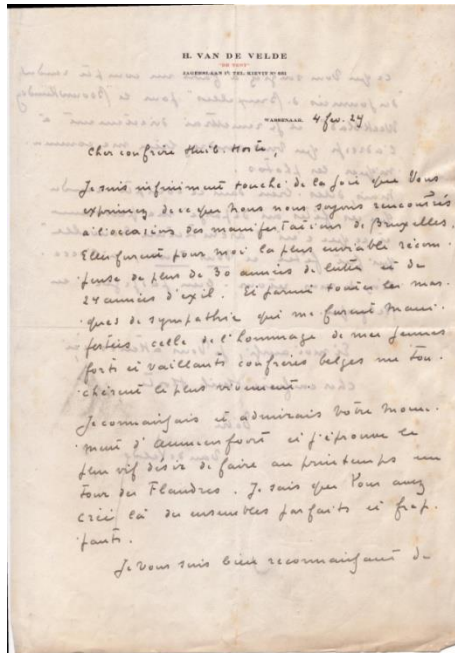 H. VAN DE VELDE
"DE TENT"
JAGERSLAAN 17. TEL. KIEVIT Nº 281
WASSENAAR, 4 fev. 24
Cher confrère Huib. Hoste,
Je suis infiniment touché de la joie que Vous
exprimez de ce que Nous nous soyons rencontrés
à l'occasion des manifestations de Bruxelles.
Elles furent pour moi la plus enviable récom-
pense de plus de 30 années de luttes et de
24 années d'exil. Et parmi toutes les mar-
ques de sympathie qui me furent mani-
festées, celle de l'hommage de mes jeunes
forts et vaillants confrères belges me tou-
chèrent le plus vivement.
Je connaissais et admirais Votre Monu-
ment d'Ammersfoort et j'éprouve le
plus vif désir de faire au printemps un
tour des Flandres. Je sais que Vous avez
créé là des ensembles parfaits et frap-
pants.
Je Vous suis bien reconnaissant de